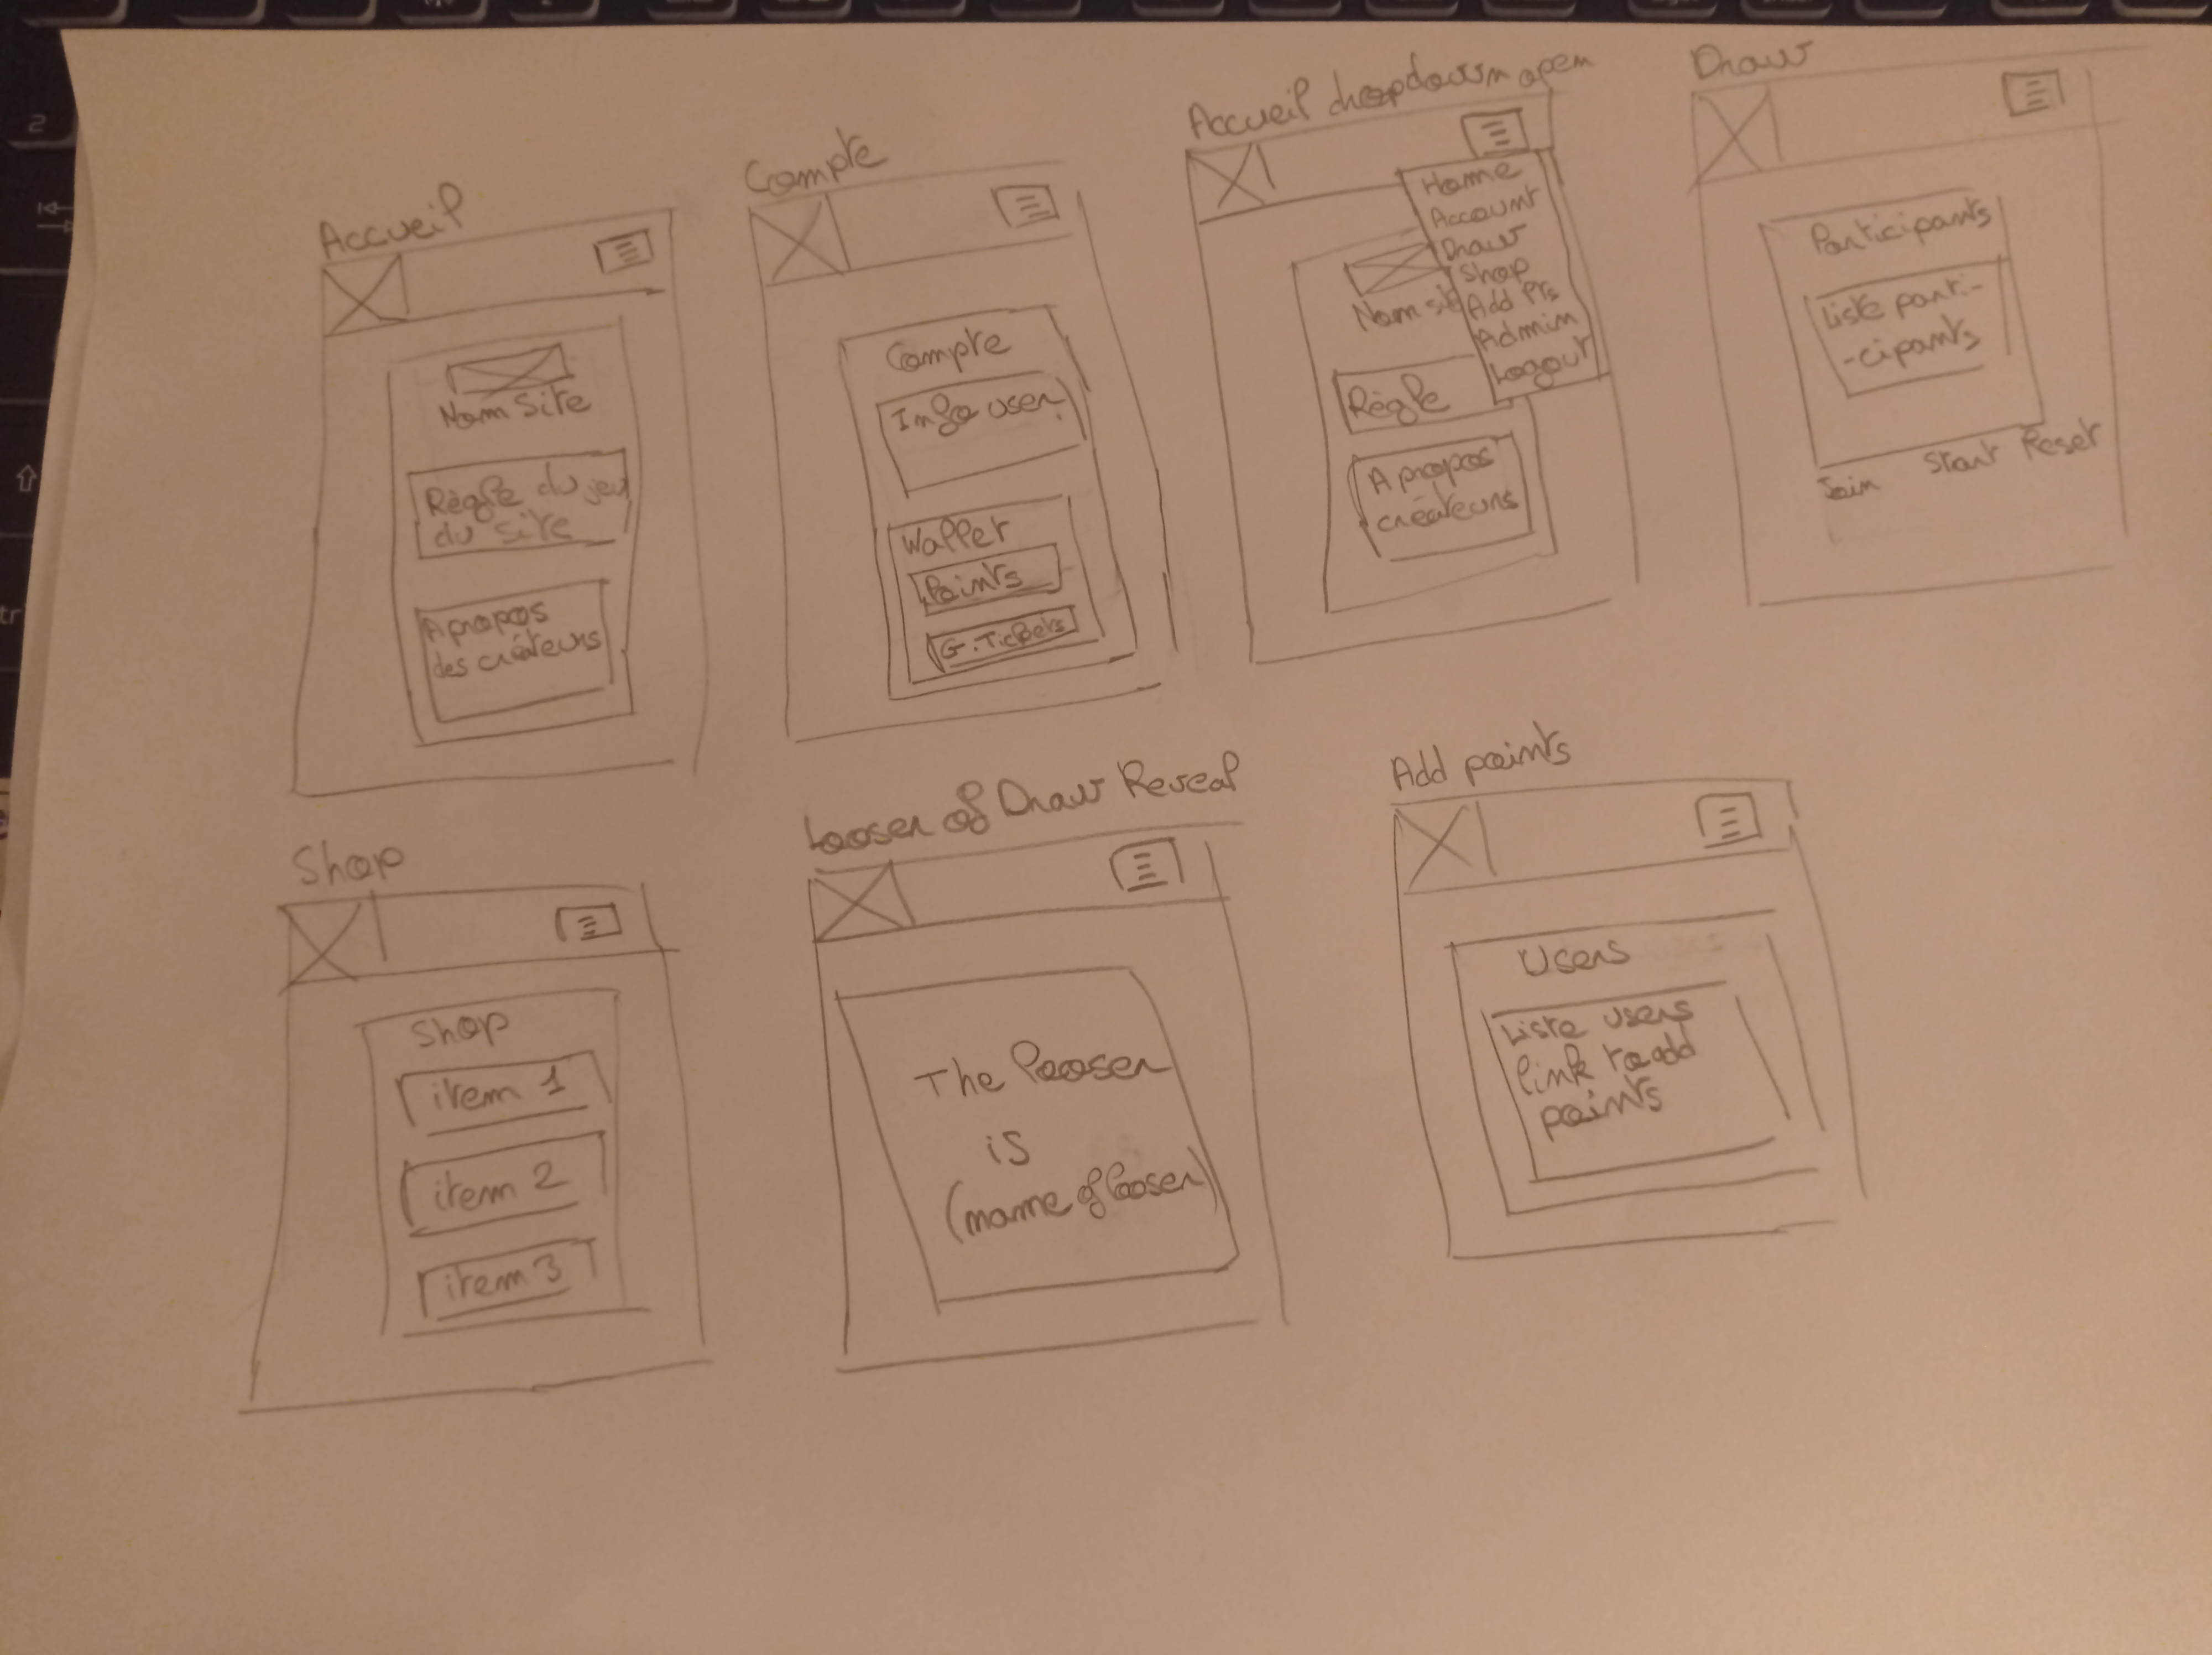 Accueil
Nom Site
Règle du jeu
du site
A propos
des créateurs
Compte
Compte
Info user
Wallet
Points
G. Tickets
Accueil dropdown open
Home
Account
Draw
Shop
Add Pts
Admin
Logout
Nom site
Règle
A propos
créateurs
Draw
Participants
Liste parti-
-cipants
Join Start Reset
Shop
Shop
item 1
item 2
item 3
Looser of Draw Reveal
The looser
is
(name of looser)
Add points
Users
Liste users
link to add
points
2